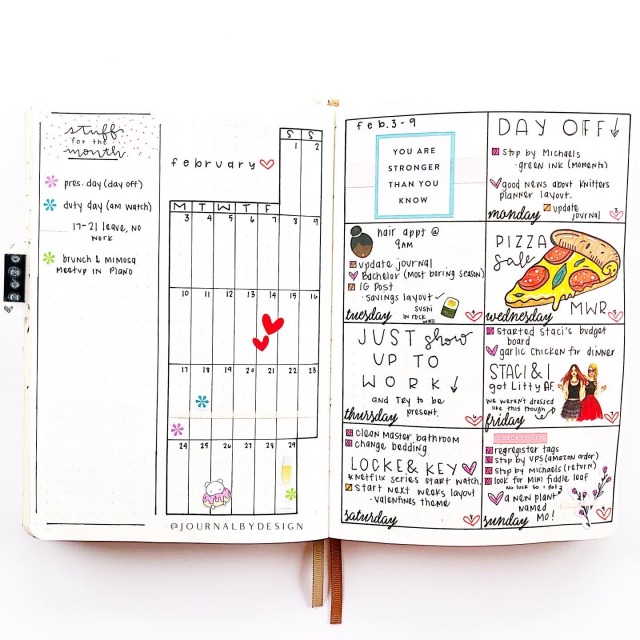 stuff
for the
month
pres. day (day off)
duty day (am watch)
17-21 leave, no
work
brunch & mimosa
meetup in Plano
2020
february
S S
1 2
M T W T F
3 4 5 6 7 8 9
10 11 12 13 14 15 16
17 18 19 20 21 22 23
24 25 26 27 28 29
@JOURNALBYDESIGN
feb. 3-9
YOU ARE
STRONGER
THAN YOU
KNOW
DAY OFF
stop by Michaels
- green ink (momento)
good news about knitters
planner layout.
update
journal
monday
hair appt @
9AM
update journal
Bachelor (most boring season)
IG Post
- savings layout
sushi
in rock
wall
tuesday
PIZZA
sale
MWR
wednesday
JUST show
UP TO
WORK
and try to be
present.
thursday
started staci's budget
board
garlic chicken for dinner
STACI & I
got Litty AF.
we weren't dressed
like this though
friday
clean master bathroom
change bedding
LOCKE & KEY
Netflix series start watch.
start next weeks layout
- valentines theme
saturday
regregster tags
stop by UPS (amazon order)
stop by Michaels (return)
look for mini fiddle leaf
no luck
a new plant
named
MO!
sunday